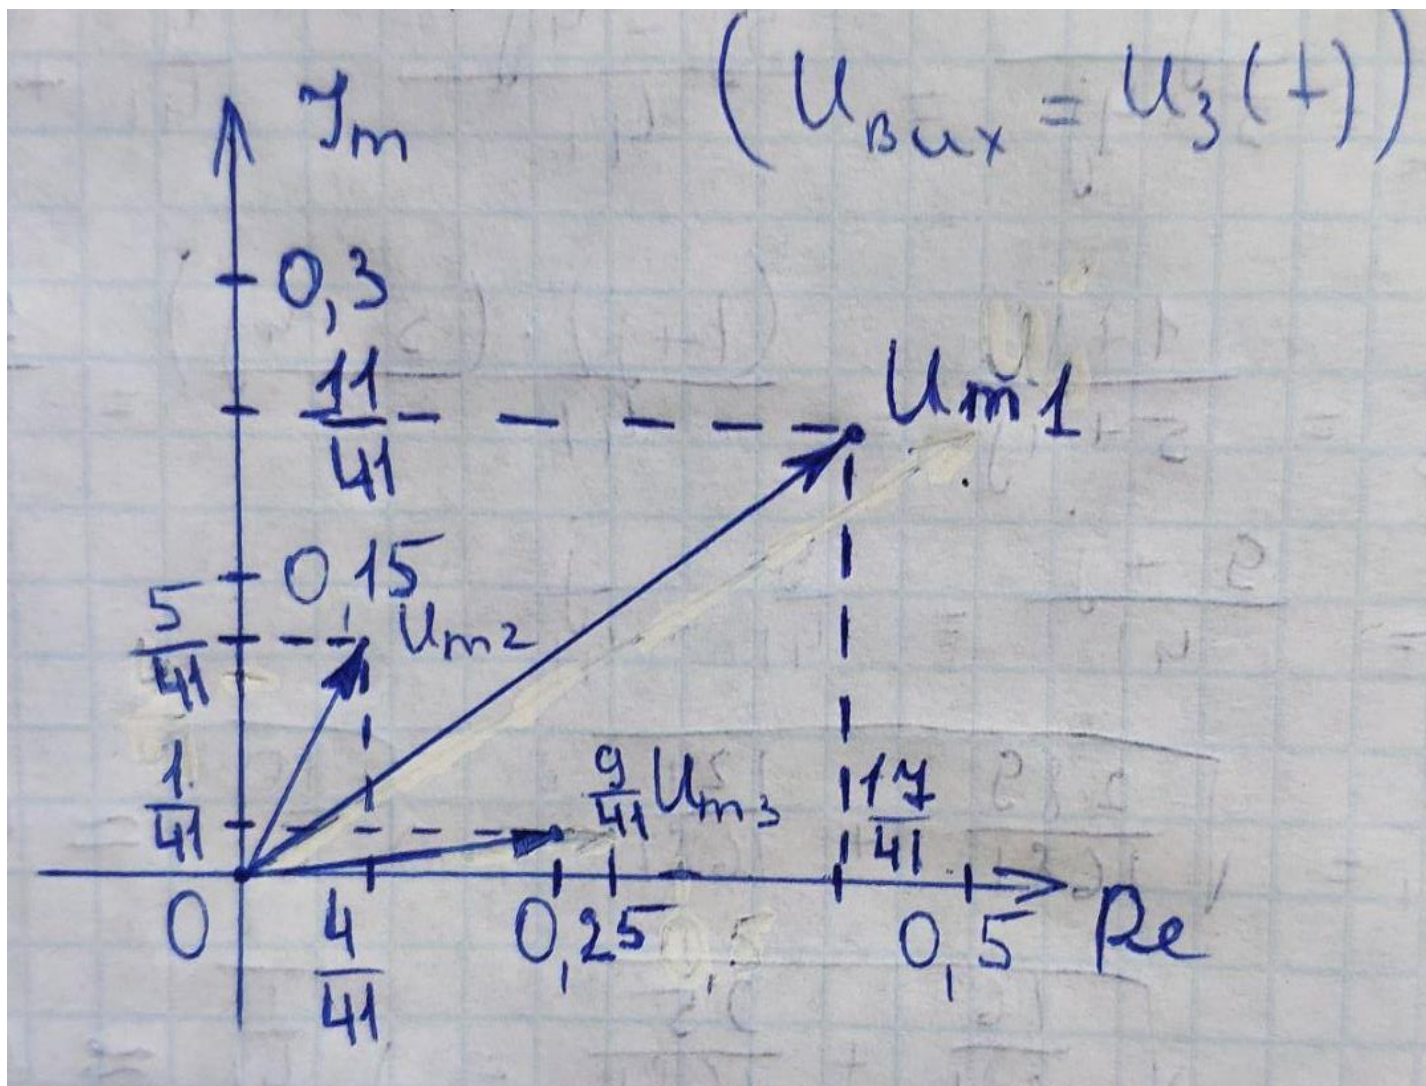 (U_вих = U_3(t))
Im
0,3
11/41
U_m1
0,15
5/41
U_m2
1/41
9/41 U_m3
17/41
0
4/41
0,25
0,5
Re